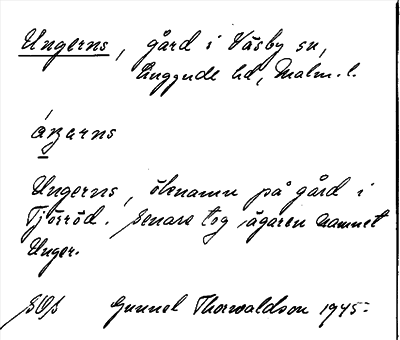 Ungerns, gård i Väsby sn,
Luggude hd, Malm. l.
áŋarns
Ungerns, öknamn på gård i
Tjörröd. Senare tog ägaren namnet
Unger.
SOS Gunnel Thorwaldson 1945.